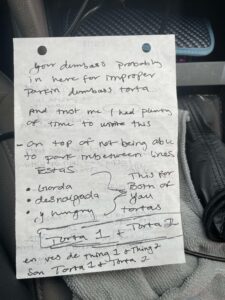 Your dumbass probably
in here for improper
parkin dumbass torta
And trust me I had plenty
of time to write this
- On top of not being able
to park inbetween lines
Estas
• Gorda
• desnalgada
• y hungry
This for
Both of
you
tortas
Torta 1 + Torta 2
en ves de thing 1 + thing 2
Son Torta 1 + Torta 2